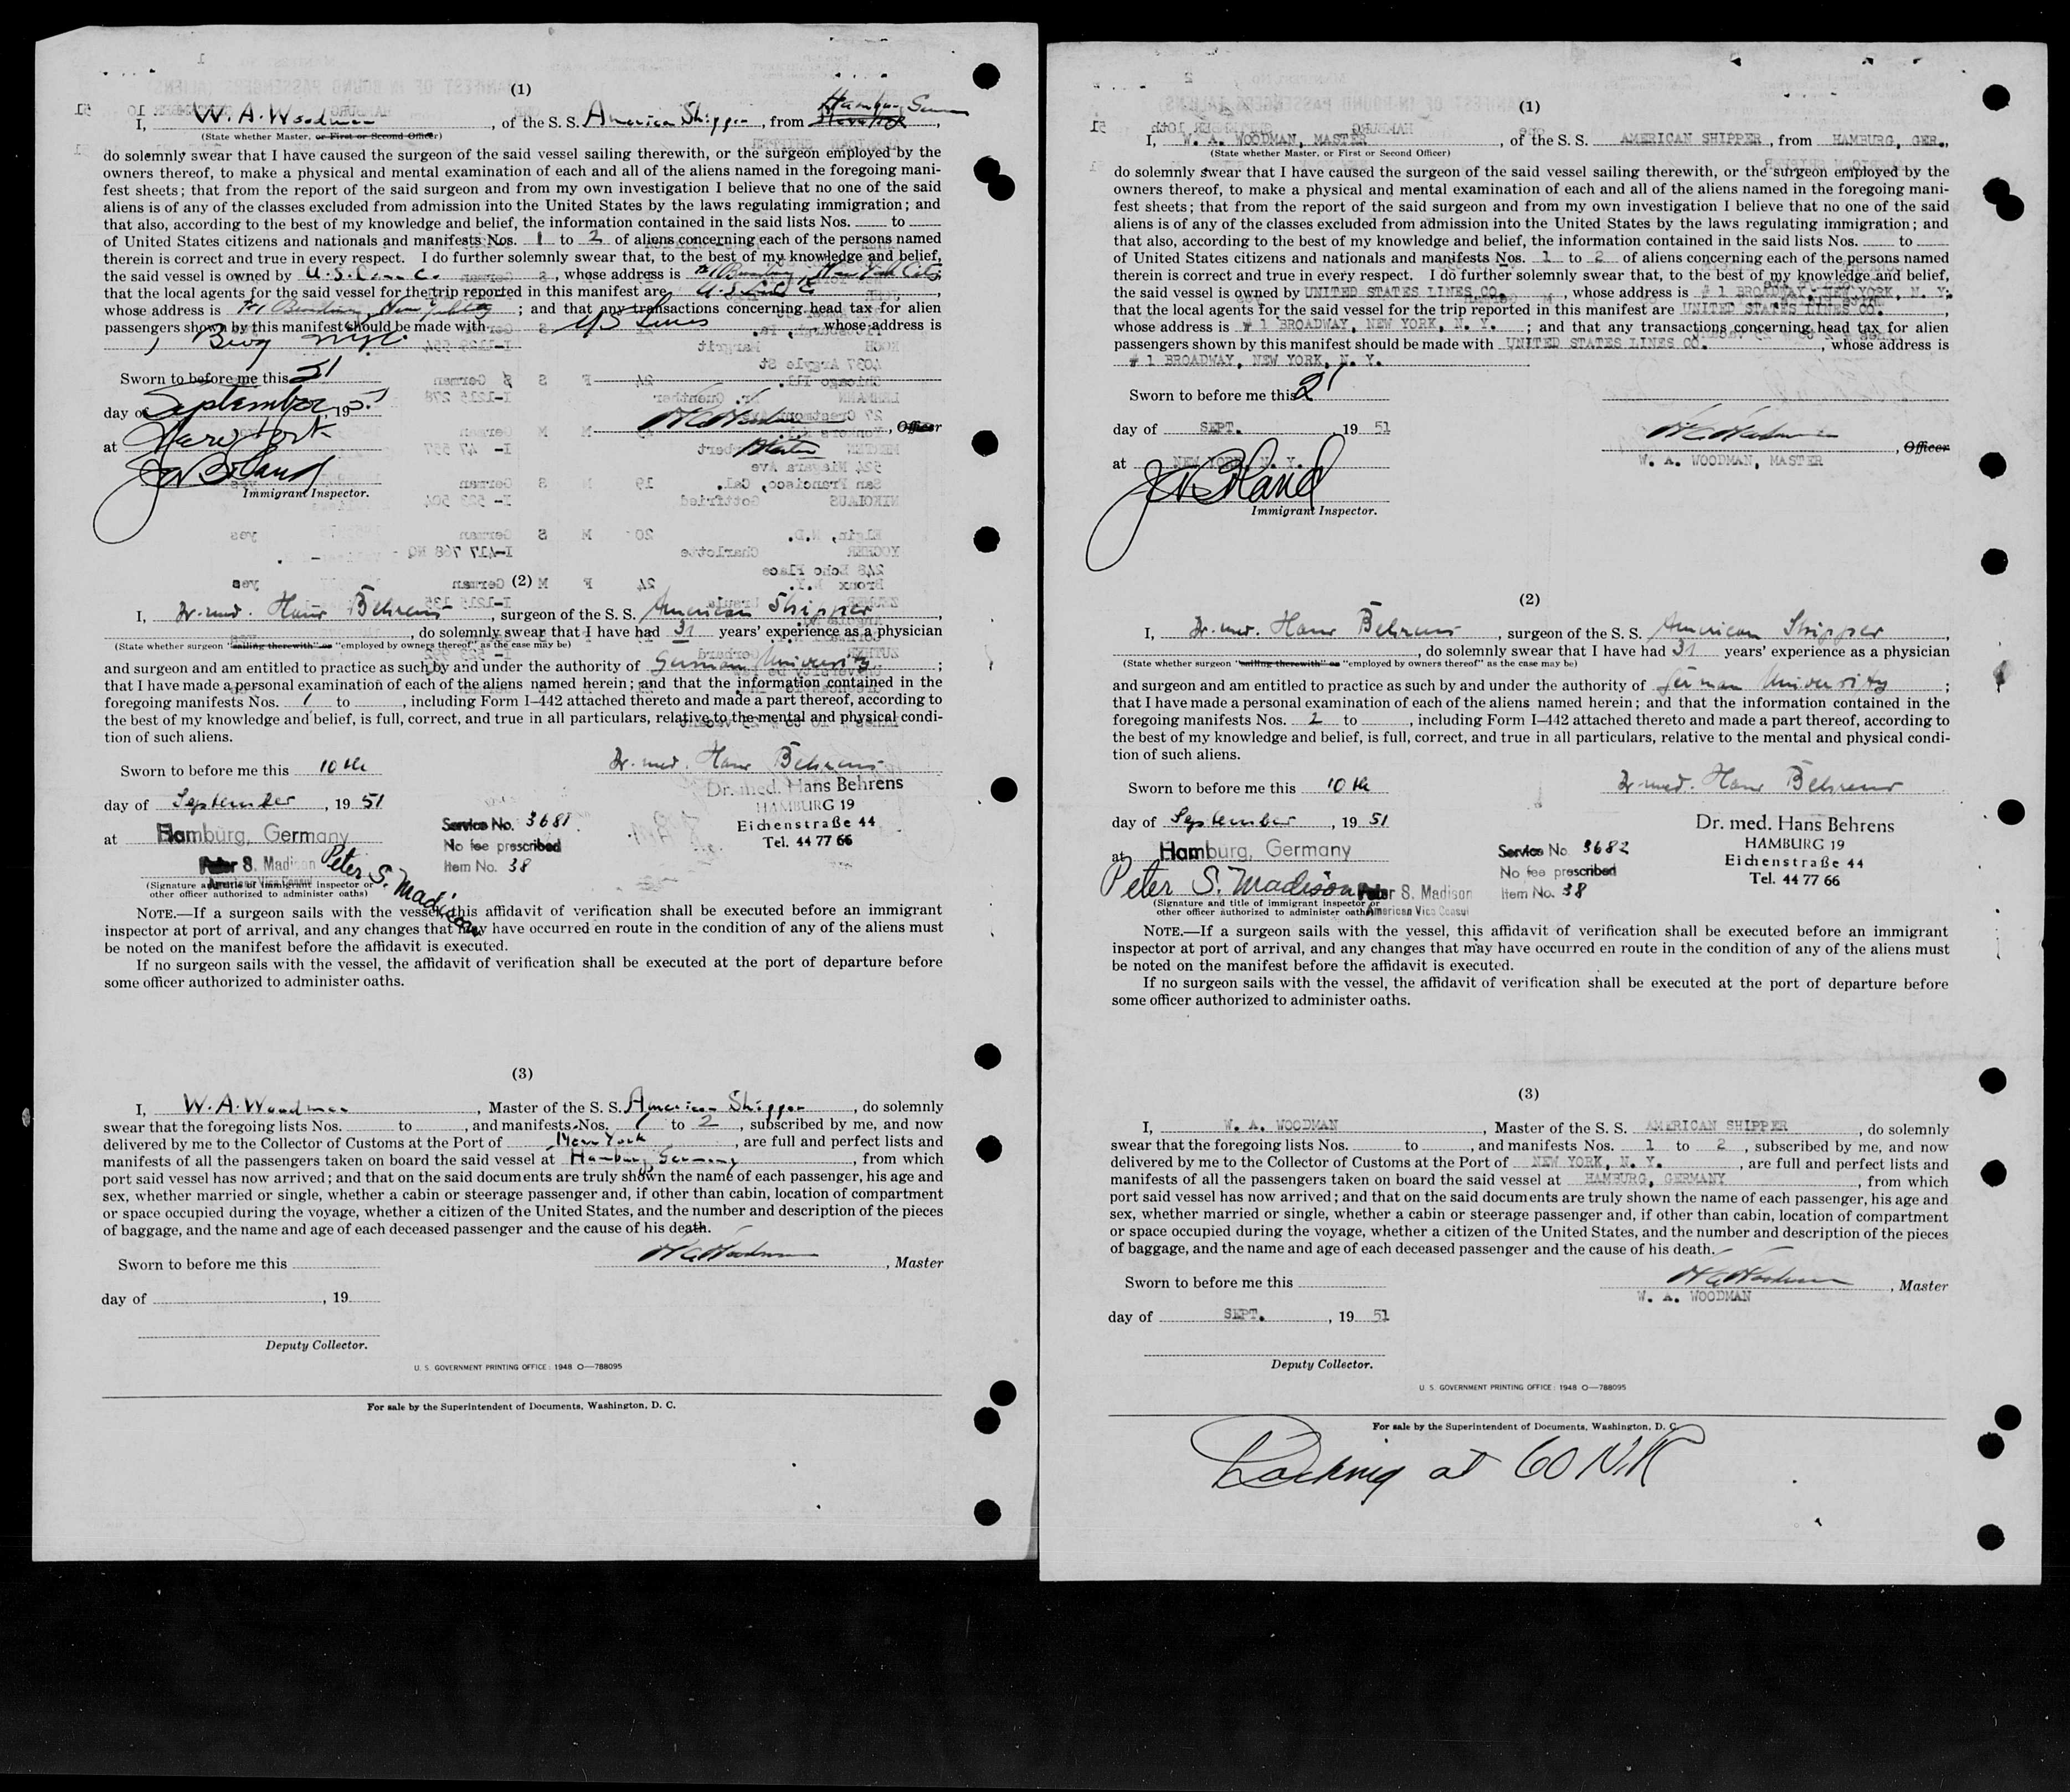 (1)
I, W. A. Woodman, of the S. S. American Shipper, from Hamburg
(State whether Master, or First or Second Officer)
do solemnly swear that I have caused the surgeon of the said vessel sailing therewith, or the surgeon employed by the
owners thereof, to make a physical and mental examination of each and all of the aliens named in the foregoing mani-
fest sheets; that from the report of the said surgeon and from my own investigation I believe that no one of the said
aliens is of any of the classes excluded from admission into the United States by the laws regulating immigration; and
that also, according to the best of my knowledge and belief, the information contained in the said lists Nos. ........ to ........
of United States citizens and nationals and manifests Nos. 1 to 2 of aliens concerning each of the persons named
therein is correct and true in every respect. I do further solemnly swear that, to the best of my knowledge and belief,
the said vessel is owned by U.S. Lines C., whose address is #1 Broadway, New York City
that the local agents for the said vessel for the trip reported in this manifest are U.S.
whose address is #1 Broadway, New York City; and that any transactions concerning head tax for alien
passengers shown by this manifest should be made with US Lines, whose address is
1 Bwy NYC.
Sworn to before me this 21
day of September, 195
at New York
W A Woodman, Officer
Master
Immigrant Inspector.
(2)
I, Dr. med. Hans Behrens, surgeon of the S. S. American Shipper,
, do solemnly swear that I have had 31 years' experience as a physician
(State whether surgeon "sailing therewith" or "employed by owners thereof" as the case may be)
and surgeon and am entitled to practice as such by and under the authority of German University;
that I have made a personal examination of each of the aliens named herein; and that the information contained in the
foregoing manifests Nos. 1 to ........, including Form I-442 attached thereto and made a part thereof, according to
the best of my knowledge and belief, is full, correct, and true in all particulars, relative to the mental and physical condi-
tion of such aliens.
Sworn to before me this 10th
Dr. med. Hans Behrens
Dr. med. Hans Behrens
HAMBURG 19
Eichenstraße 44
Tel. 44 77 66
day of September, 19 51
at Hamburg, Germany
Service No. 3681
No fee prescribed
Item No. 38
Peter S. Madison
American Vice Consul
Peter S. Madison
(Signature and title of immigrant inspector or
other officer authorized to administer oaths)
NOTE.—If a surgeon sails with the vessel, this affidavit of verification shall be executed before an immigrant
inspector at port of arrival, and any changes that may have occurred en route in the condition of any of the aliens must
be noted on the manifest before the affidavit is executed.
If no surgeon sails with the vessel, the affidavit of verification shall be executed at the port of departure before
some officer authorized to administer oaths.
(3)
I, W. A. Woodman, Master of the S. S. American Shipper, do solemnly
swear that the foregoing lists Nos. ........ to ........, and manifests Nos. 1 to 2, subscribed by me, and now
delivered by me to the Collector of Customs at the Port of New York, are full and perfect lists and
manifests of all the passengers taken on board the said vessel at Hamburg, Germany, from which
port said vessel has now arrived; and that on the said documents are truly shown the name of each passenger, his age and
sex, whether married or single, whether a cabin or steerage passenger and, if other than cabin, location of compartment
or space occupied during the voyage, whether a citizen of the United States, and the number and description of the pieces
of baggage, and the name and age of each deceased passenger and the cause of his death.
Sworn to before me this ........
W A Woodman, Master
day of ........, 19....
Deputy Collector.
U. S. GOVERNMENT PRINTING OFFICE: 1948 O—788095
For sale by the Superintendent of Documents, Washington, D. C.
(1)
I, W. A. WOODMAN, MASTER, of the S. S. AMERICAN SHIPPER, from HAMBURG, GER.,
(State whether Master, or First or Second Officer)
do solemnly swear that I have caused the surgeon of the said vessel sailing therewith, or the surgeon employed by the
owners thereof, to make a physical and mental examination of each and all of the aliens named in the foregoing mani-
fest sheets; that from the report of the said surgeon and from my own investigation I believe that no one of the said
aliens is of any of the classes excluded from admission into the United States by the laws regulating immigration; and
that also, according to the best of my knowledge and belief, the information contained in the said lists Nos. ........ to ........
of United States citizens and nationals and manifests Nos. 1 to 2 of aliens concerning each of the persons named
therein is correct and true in every respect. I do further solemnly swear that, to the best of my knowledge and belief,
the said vessel is owned by UNITED STATES LINES CO., whose address is # 1 BROADWAY, NEW YORK, N. Y.
that the local agents for the said vessel for the trip reported in this manifest are UNITED STATES LINES CO.,
whose address is # 1 BROADWAY, NEW YORK, N. Y.; and that any transactions concerning head tax for alien
passengers shown by this manifest should be made with UNITED STATES LINES CO., whose address is
# 1 BROADWAY, NEW YORK, N. Y.
Sworn to before me this 21
day of SEPT., 19 51
W A Woodman, Officer
W. A. WOODMAN, MASTER
at NEW YORK, N. Y.
Immigrant Inspector.
(2)
I, Dr. med. Hans Behrens, surgeon of the S. S. American Shipper,
, do solemnly swear that I have had 31 years' experience as a physician
(State whether surgeon "sailing therewith" or "employed by owners thereof" as the case may be)
and surgeon and am entitled to practice as such by and under the authority of German University;
that I have made a personal examination of each of the aliens named herein; and that the information contained in the
foregoing manifests Nos. 2 to ........, including Form I-442 attached thereto and made a part thereof, according to
the best of my knowledge and belief, is full, correct, and true in all particulars, relative to the mental and physical condi-
tion of such aliens.
Sworn to before me this 10th
Dr. med. Hans Behrens
day of September, 19 51
Dr. med. Hans Behrens
HAMBURG 19
Eichenstraße 44
Tel. 44 77 66
at Hamburg, Germany
Service No. 3682
No fee prescribed
Item No. 38
Peter S. Madison
Peter S. Madison
American Vice Consul
(Signature and title of immigrant inspector or
other officer authorized to administer oaths)
NOTE.—If a surgeon sails with the vessel, this affidavit of verification shall be executed before an immigrant
inspector at port of arrival, and any changes that may have occurred en route in the condition of any of the aliens must
be noted on the manifest before the affidavit is executed.
If no surgeon sails with the vessel, the affidavit of verification shall be executed at the port of departure before
some officer authorized to administer oaths.
(3)
I, W. A. WOODMAN, Master of the S. S. AMERICAN SHIPPER, do solemnly
swear that the foregoing lists Nos. ........ to ........, and manifests Nos. 1 to 2, subscribed by me, and now
delivered by me to the Collector of Customs at the Port of NEW YORK, N. Y., are full and perfect lists and
manifests of all the passengers taken on board the said vessel at HAMBURG, GERMANY, from which
port said vessel has now arrived; and that on the said documents are truly shown the name of each passenger, his age and
sex, whether married or single, whether a cabin or steerage passenger and, if other than cabin, location of compartment
or space occupied during the voyage, whether a citizen of the United States, and the number and description of the pieces
of baggage, and the name and age of each deceased passenger and the cause of his death.
Sworn to before me this ........
W A Woodman, Master
W. A. WOODMAN
day of SEPT., 19 51
Deputy Collector.
U. S. GOVERNMENT PRINTING OFFICE: 1948 O—788095
For sale by the Superintendent of Documents, Washington, D. C.
Docking at 60 N.R